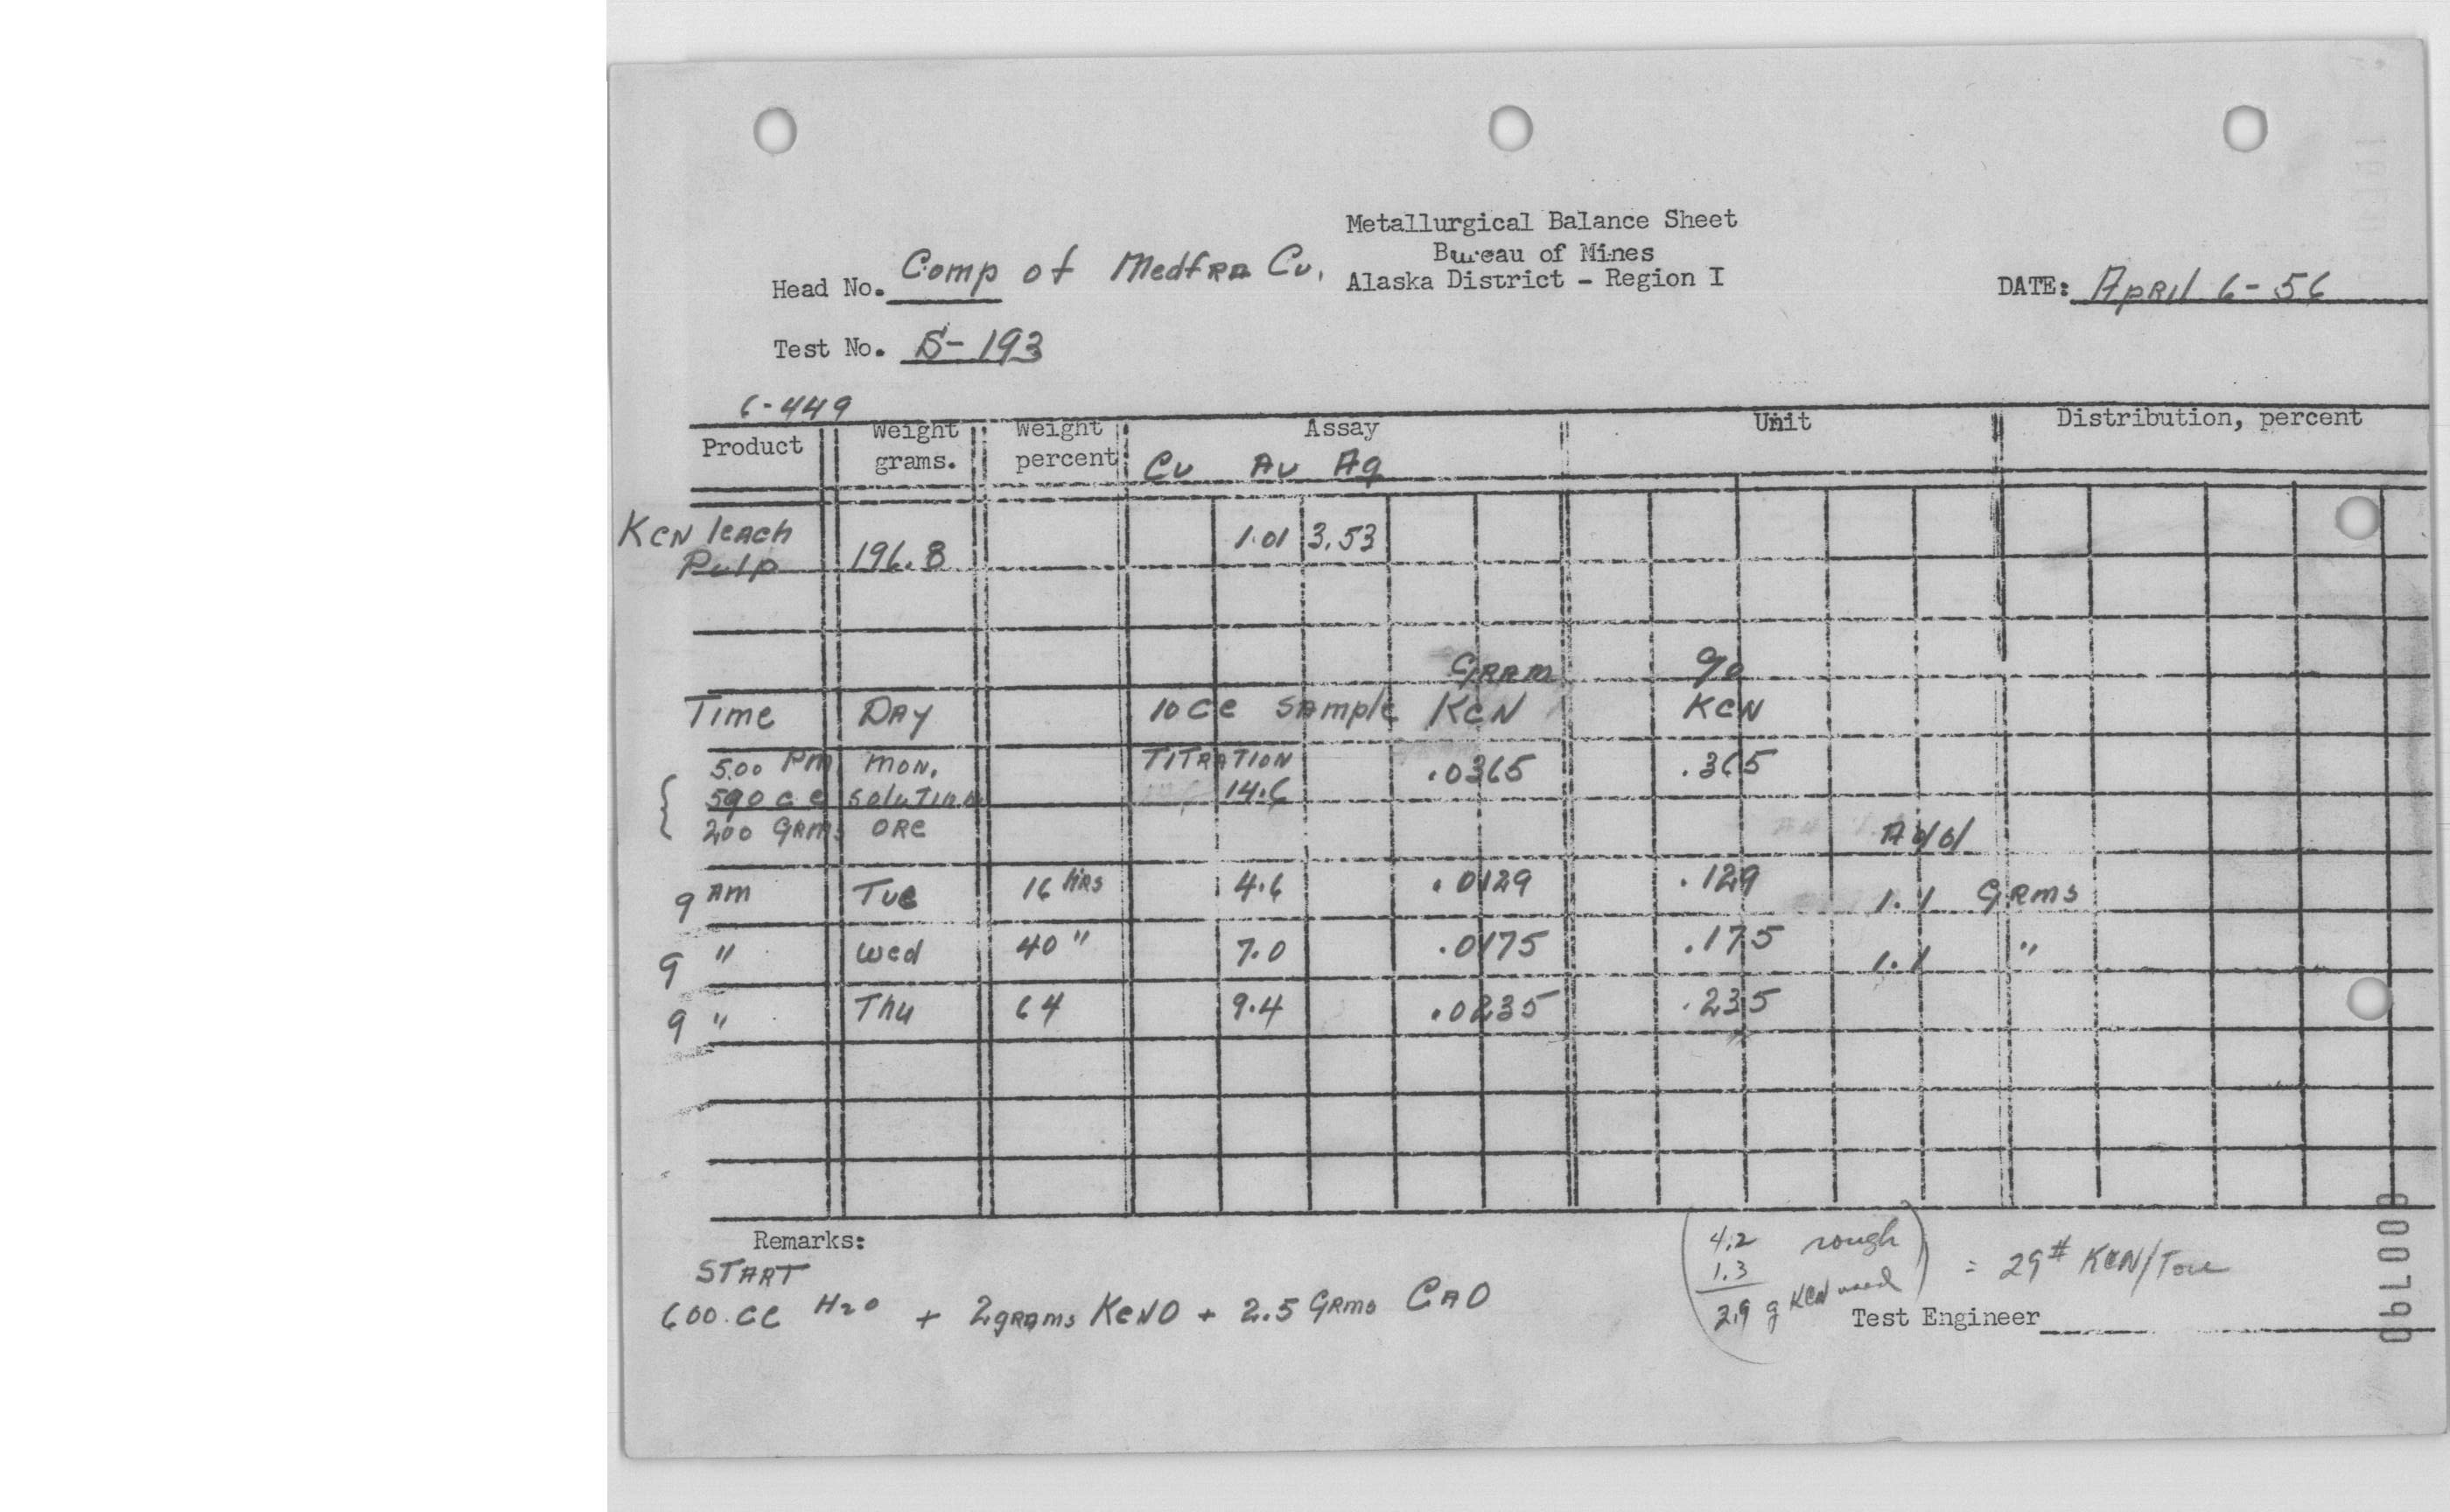 Metallurgical Balance Sheet
Bureau of Mines
Alaska District - Region I
Head No. Comp of Medfra Cu.
DATE: April 6-56
Test No. S-193
6-449
Product Weight grams. Weight percent Assay Unit Distribution, percent
Cu Au Ag
KCN leach
Pulp 196.8 1.01 3.53
Gram %
Time Day 10 cc Sample KCN KCN
5.00 PM Mon. Titration .0365 .365
590 cc solution 14.6
200 Grms ore Add
9 AM Tue 16 Hrs 4.6 .0129 .129 1.1 Grms
9 " Wed 40 " 7.0 .0175 .175 1.1 "
9 " Thu 64 9.4 .0235 .235
Remarks:
START
600. cc H2O + 2 grams KCNO + 2.5 Grms CaO
4.2 rough
1.3
2.9 g KCN used = 29# KCN/Ton
Test Engineer
000790